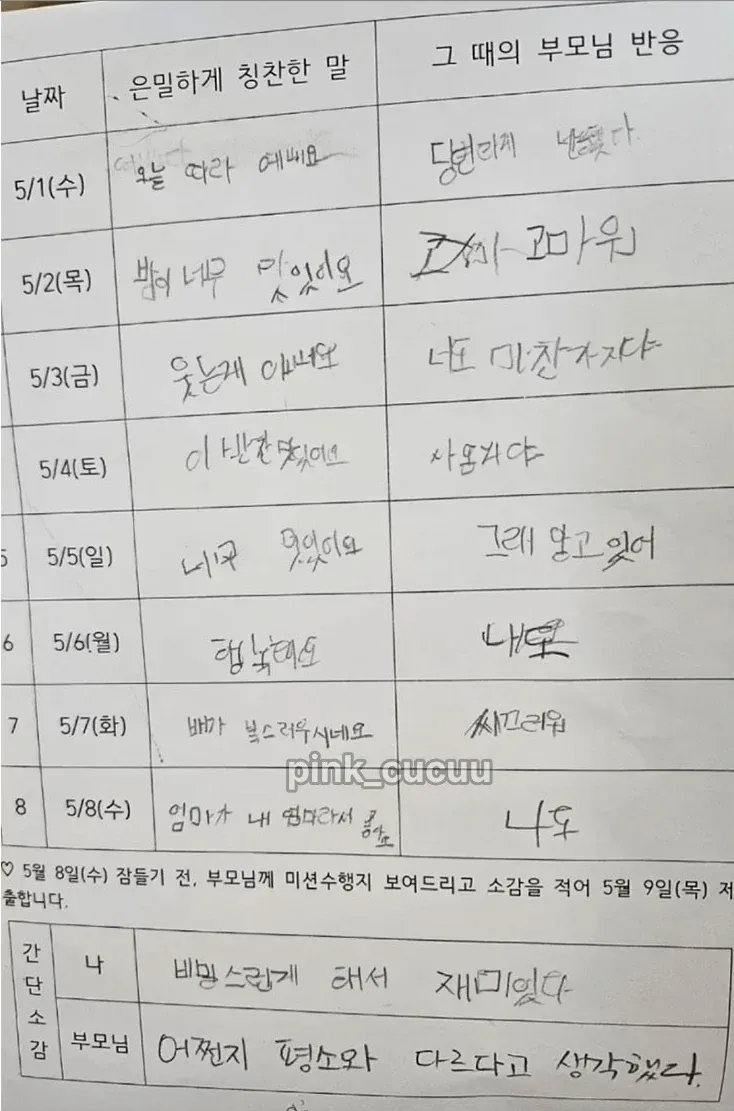 날짜 은밀하게 칭찬한 말 그 때의 부모님 반응
5/1(수) 오늘 따라 예뻐요
5/2(목) 밥이 너무 맛있어요 고마워
5/3(금) 웃는게 너도 마찬가지야
5/4(토) 이 맛있어요
5 5/5(일) 너무 멋있어요 그래 알고 있어
6 5/6(월) 행복해요 나도
7 5/7(화) 배가 복스러우시네요 씨끄러워
8 5/8(수) 엄마가 내 엄마라서 좋아요 나도
pink_cucuu
♡ 5월 8일(수) 잠들기 전, 부모님께 미션수행지 보여드리고 소감을 적어 5월 9일(목) 제
출합니다.
간단소감
나 비밀스럽게 해서 재미있다
부모님 어쩐지 평소와 다르다고 생각했다.